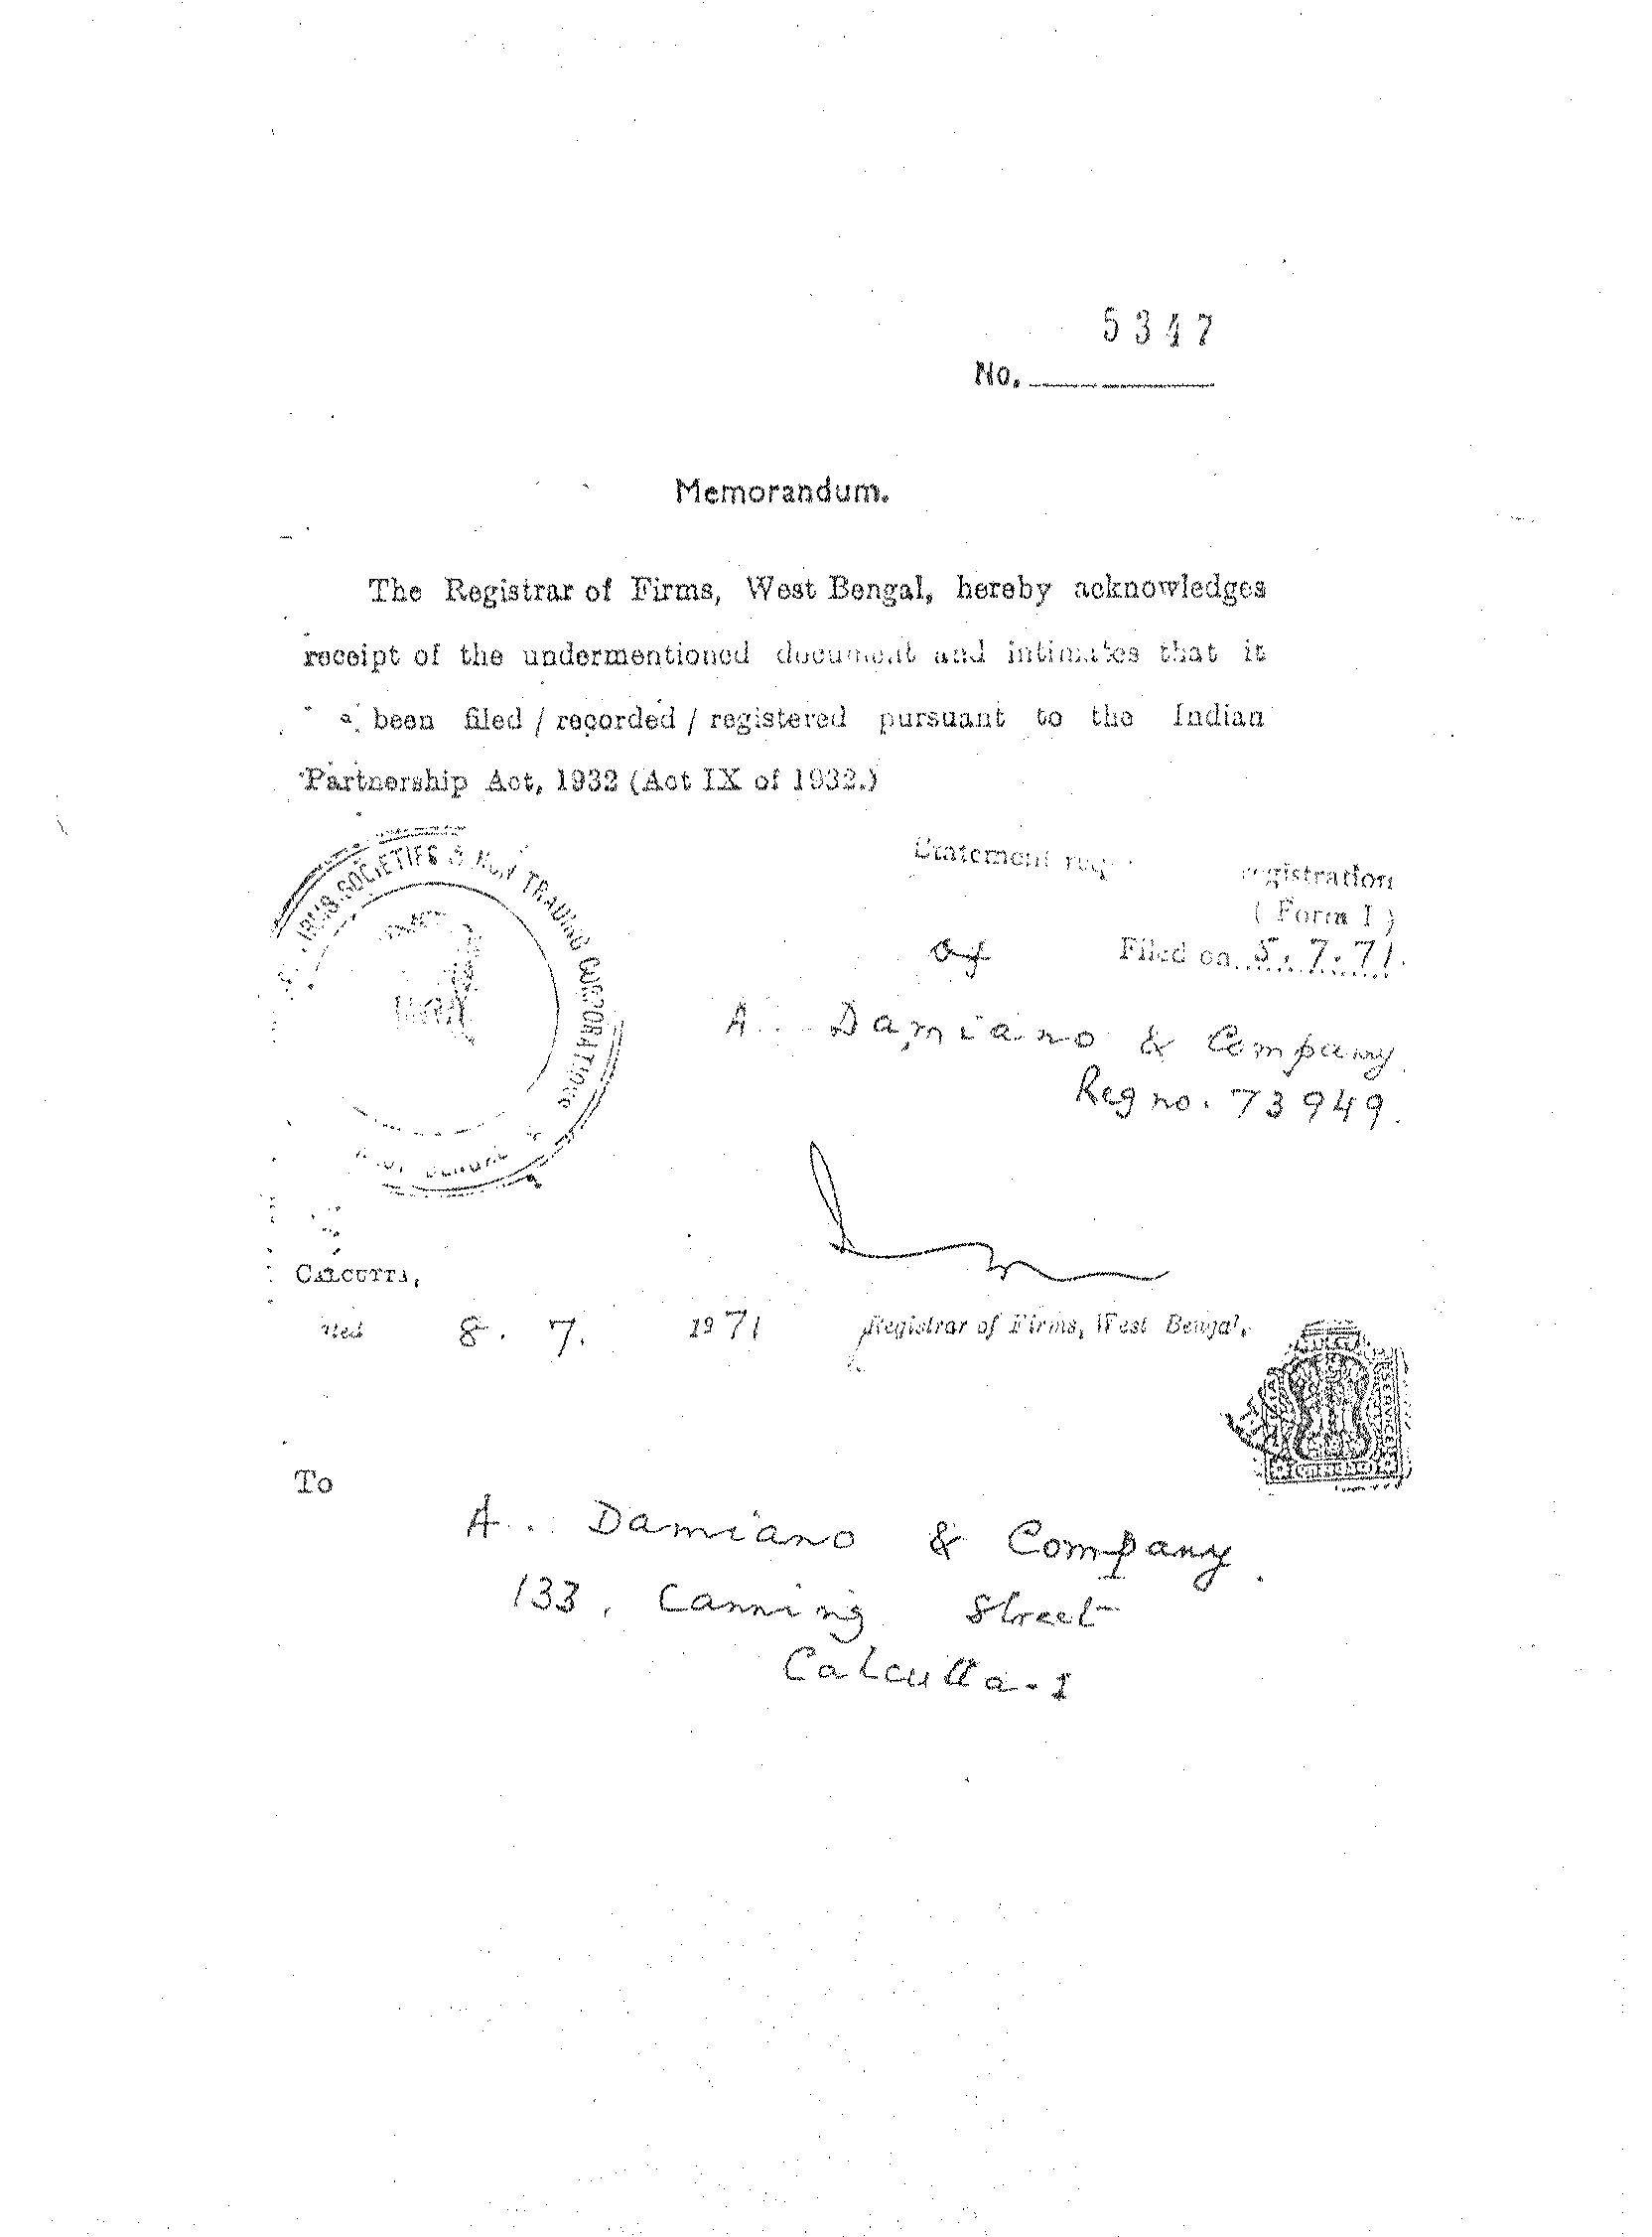 5347
No.
Memorandum.
The Registrar of Firms, West Bengal, hereby acknowledges
receipt of the undermentioned document and intimates that it
been filed / recorded / registered pursuant to the Indian
Partnership Act, 1932 (Act IX of 1932.)
SOCIETIES & NON TRADING CORPORATIONS
BENGAL
Statement registration
( Form I )
of Filed on 5.7.71.
A. Damiano & Company
Reg no. 73949.
CALCUTTA,
8. 7. 1971 Registrar of Firms, West Bengal.
To
A. Damiano & Company.
133, Canning Street
Calcutta-1